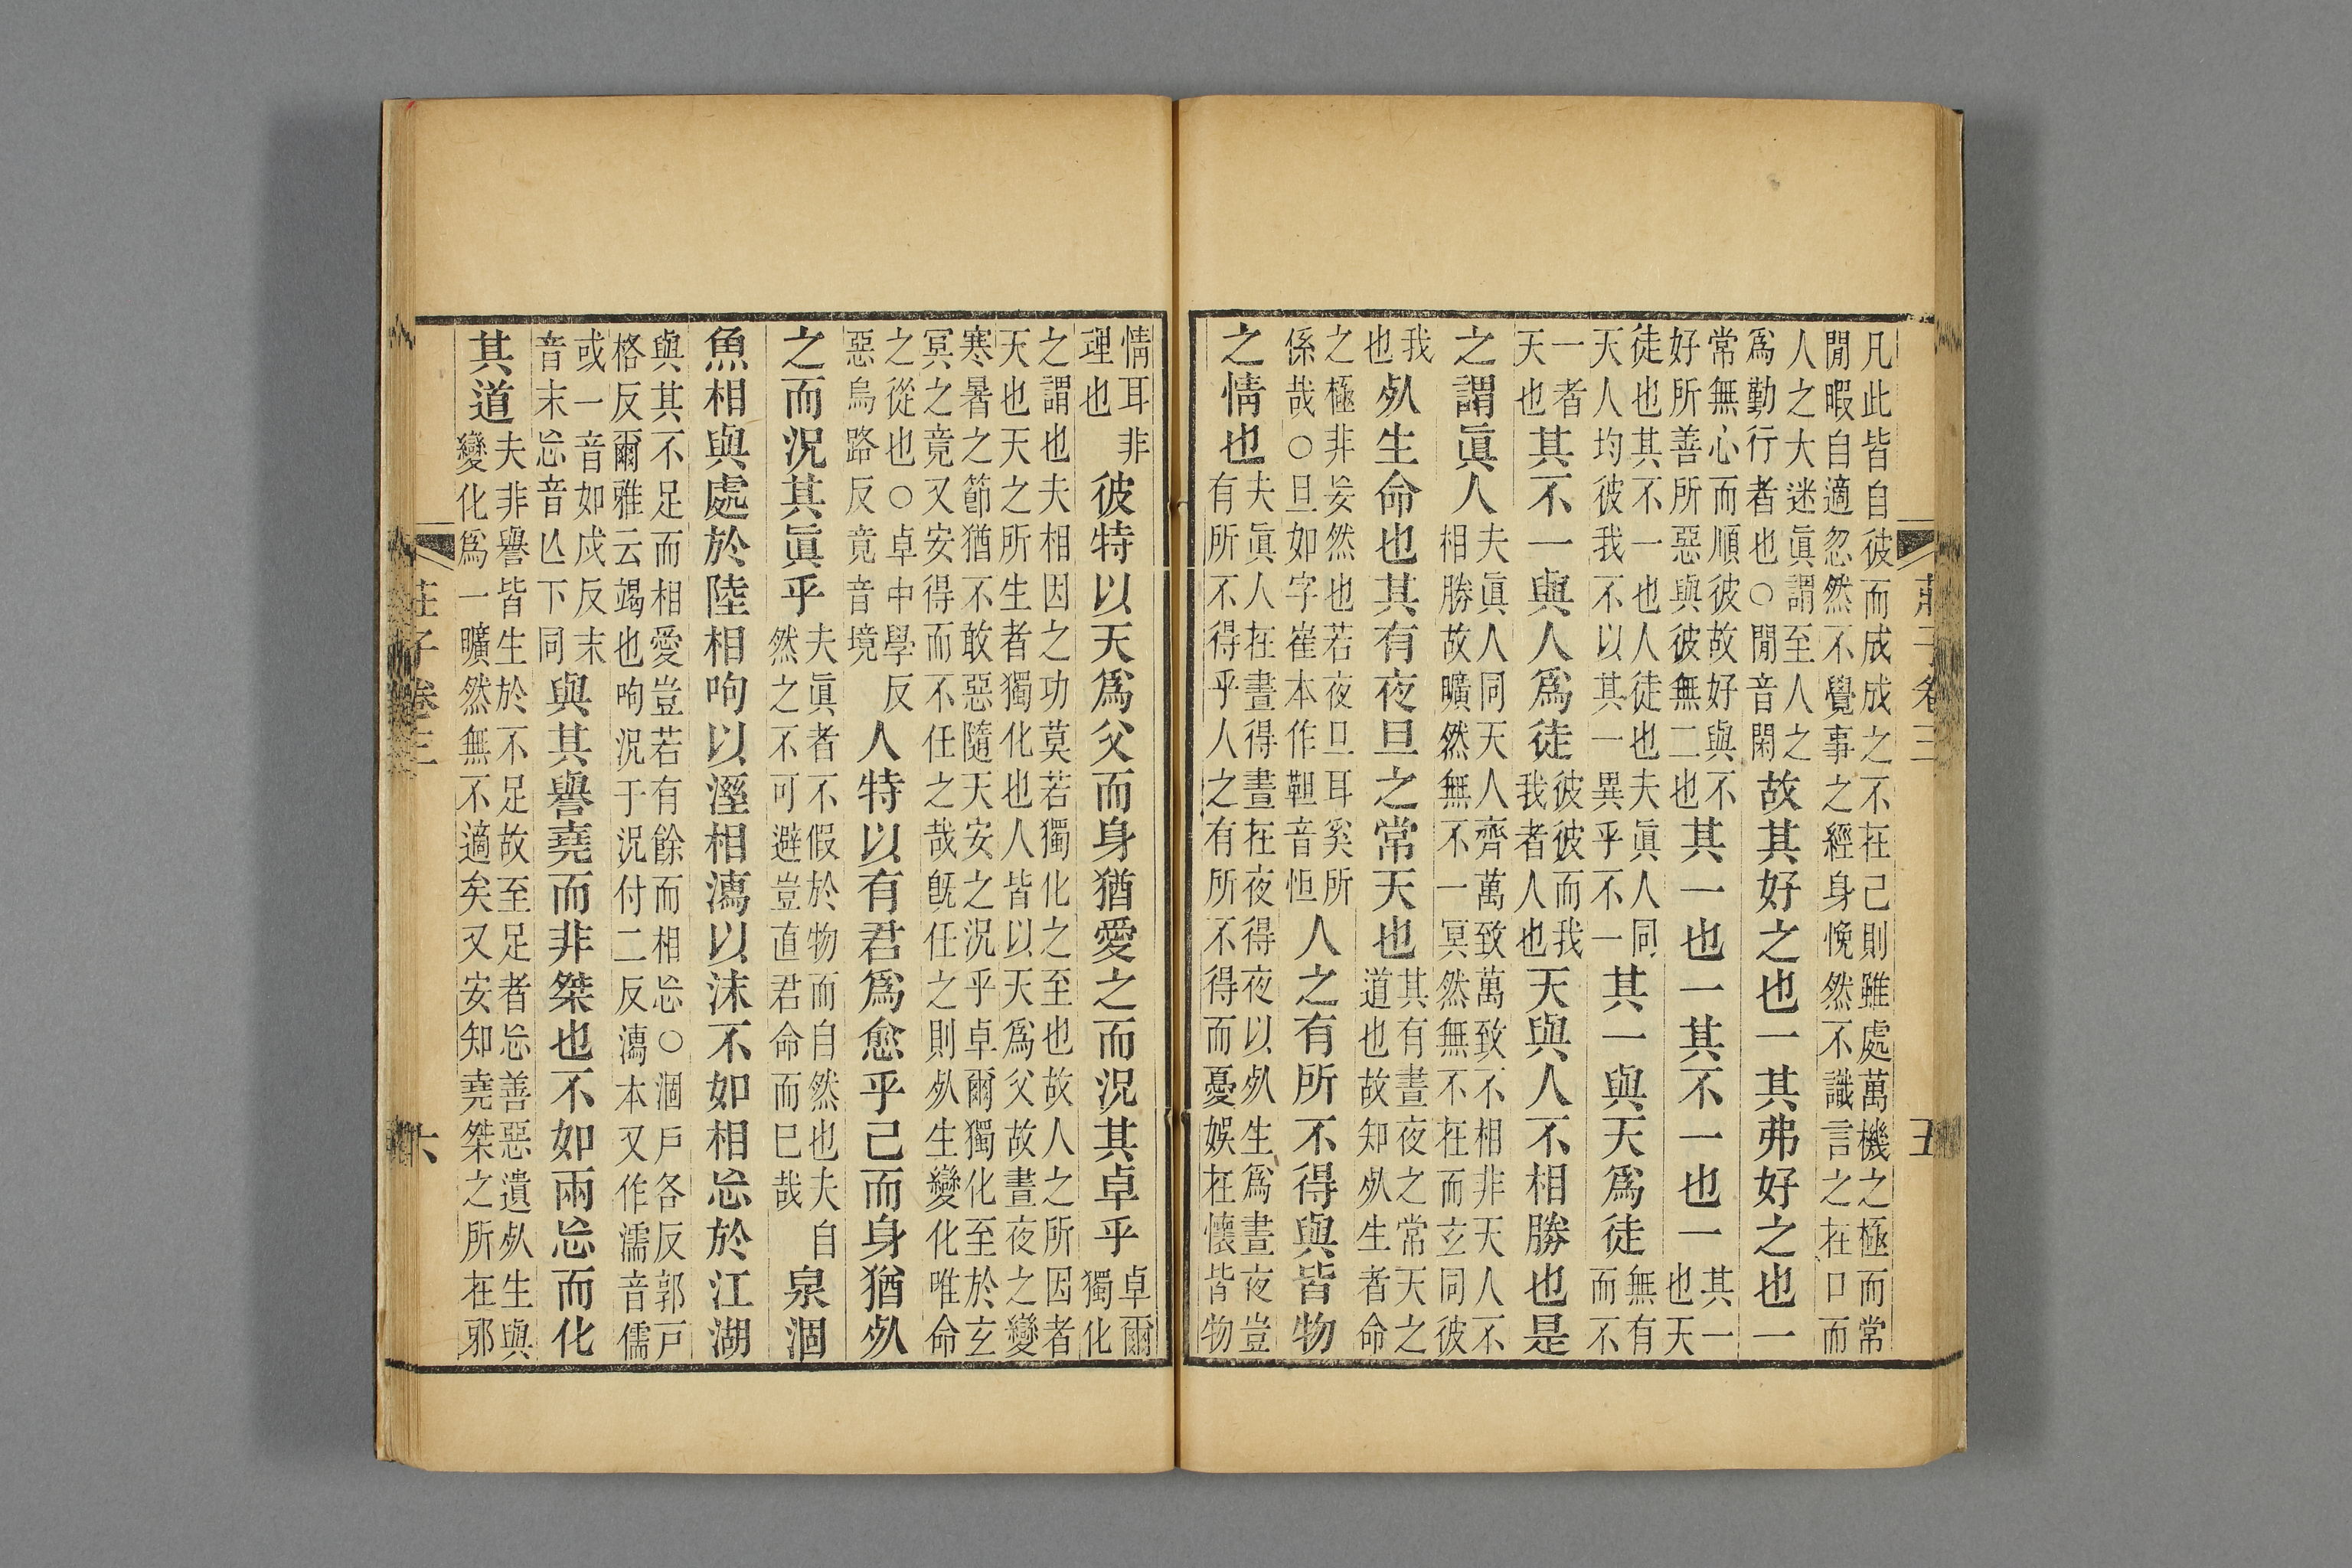 莊子卷三 五
凡此皆自彼而成成之不在己則雖處萬機之極而常
閒暇自適忽然不覺事之經身悗然不識言之在口而
人之大迷眞謂至人之
爲勤行者也○閒音閑
故其好之也一其弗好之也一
常無心而順彼故好與不
好所善所惡與彼無二也
其一也一其不一也一
其一
也天
徒也其不一也人徒也夫眞人同
天人均彼我不以其一異乎不一
其一與天爲徒
無有
而不
一者
天也
其不一與人爲徒
彼彼而我
我者人也
天與人不相勝也是
之謂眞人
夫眞人同天人齊萬致萬致不相非天人不
相勝故曠然無不一冥然無不在而玄同彼
我
也
死生命也其有夜旦之常天也
其有晝夜之常天之
道也故知死生者命
之極非妄然也若夜旦耳奚所
係哉○旦如字崔本作靼音怛
人之有所不得與皆物
之情也
夫眞人在晝得晝在夜得夜以死生爲晝夜豈
有所不得乎人之有所不得而憂娛在懷皆物
情耳非
理也
彼特以天爲父而身猶愛之而況其卓乎
卓爾
獨化
之謂也夫相因之功莫若獨化之至也故人之所因者
天也天之所生者獨化也人皆以天爲父故晝夜之變
寒暑之節猶不敢惡隨天安之況乎卓爾獨化至於玄
冥之竟又安得而不任之哉旣任之則死生變化唯命
之從也○卓中學反
惡烏路反竟音境
人特以有君爲愈乎己而身猶死
之而況其眞乎
夫眞者不假於物而自然也夫自
然之不可避豈直君命而已哉
泉涸
魚相與處於陸相呴以溼相濡以沫不如相忘於江湖
與其不足而相愛豈若有餘而相忘○涸戶各反郭戶
格反爾雅云竭也呴況于況付二反濡本又作濡音儒
或一音如戍反末
音末忘音亡下同
與其譽堯而非桀也不如兩忘而化
其道
夫非譽皆生於不足故至足者忘善惡遺死生與
變化爲一曠然無不適矣又安知堯桀之所在邪
莊子卷三 六